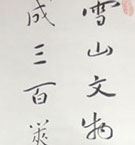 雪山文物
成三百